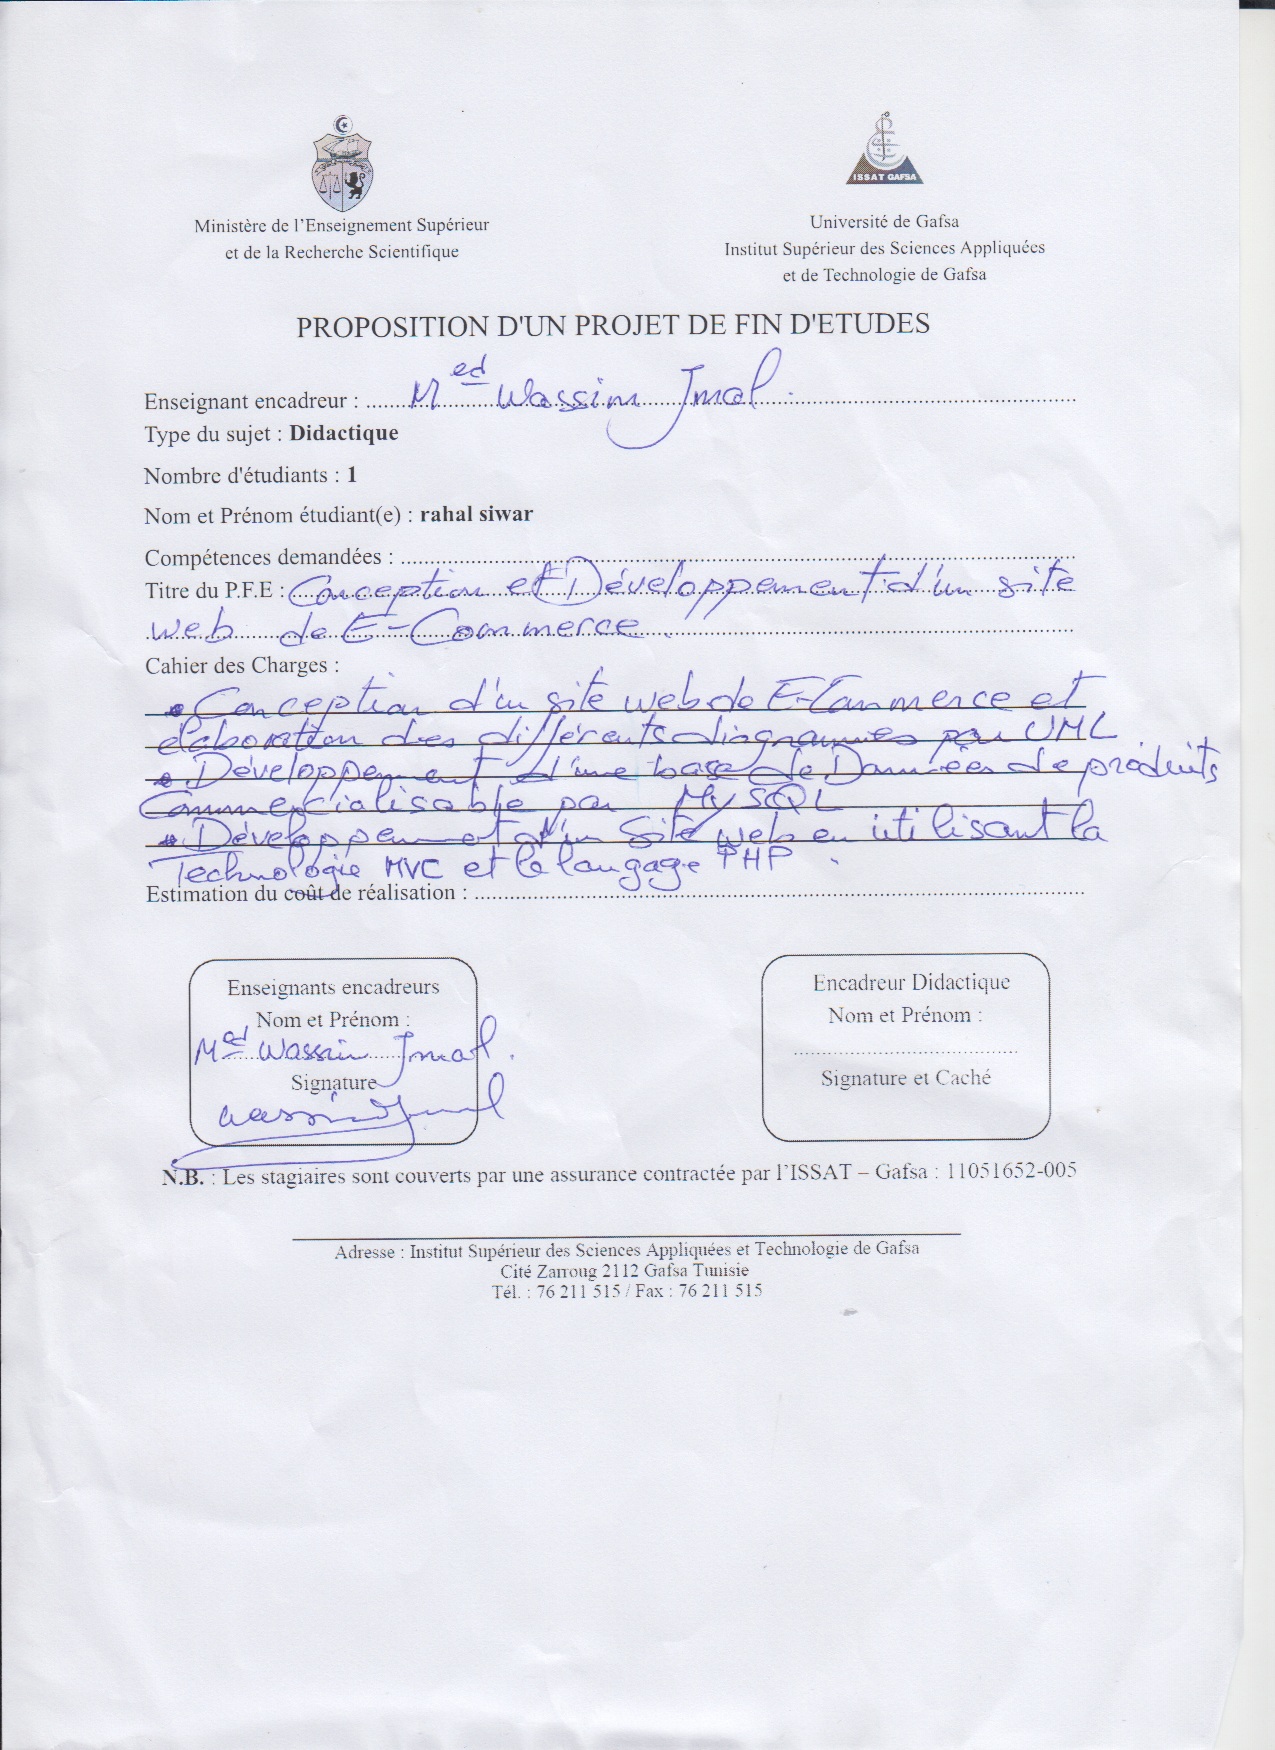 ISSAT GAFSA
Ministère de l'Enseignement Supérieur
et de la Recherche Scientifique
Université de Gafsa
Institut Supérieur des Sciences Appliquées
et de Technologie de Gafsa
PROPOSITION D'UN PROJET DE FIN D'ETUDES
Enseignant encadreur : Med Wassim Jmal.
Type du sujet : Didactique
Nombre d'étudiants : 1
Nom et Prénom étudiant(e) : rahal siwar
Compétences demandées :
Titre du P.F.E : Conception et Développement d'un site
web de E-Commerce.
Cahier des Charges :
• Conception d'un site web de E-Commerce et
élaboration des différents diagrammes par UML
• Développement d'une base de Données de produits
Commercialisable par MySQL
• Développement d'un Site web en utilisant la
Technologie MVC et le langage PHP.
Estimation du coût de réalisation :
Enseignants encadreurs
Nom et Prénom :
Med Wassim Jmal.
Signature
Encadreur Didactique
Nom et Prénom :
Signature et Caché
N.B. : Les stagiaires sont couverts par une assurance contractée par l'ISSAT – Gafsa : 11051652-005
Adresse : Institut Supérieur des Sciences Appliquées et Technologie de Gafsa
Cité Zarroug 2112 Gafsa Tunisie
Tél. : 76 211 515 / Fax : 76 211 515